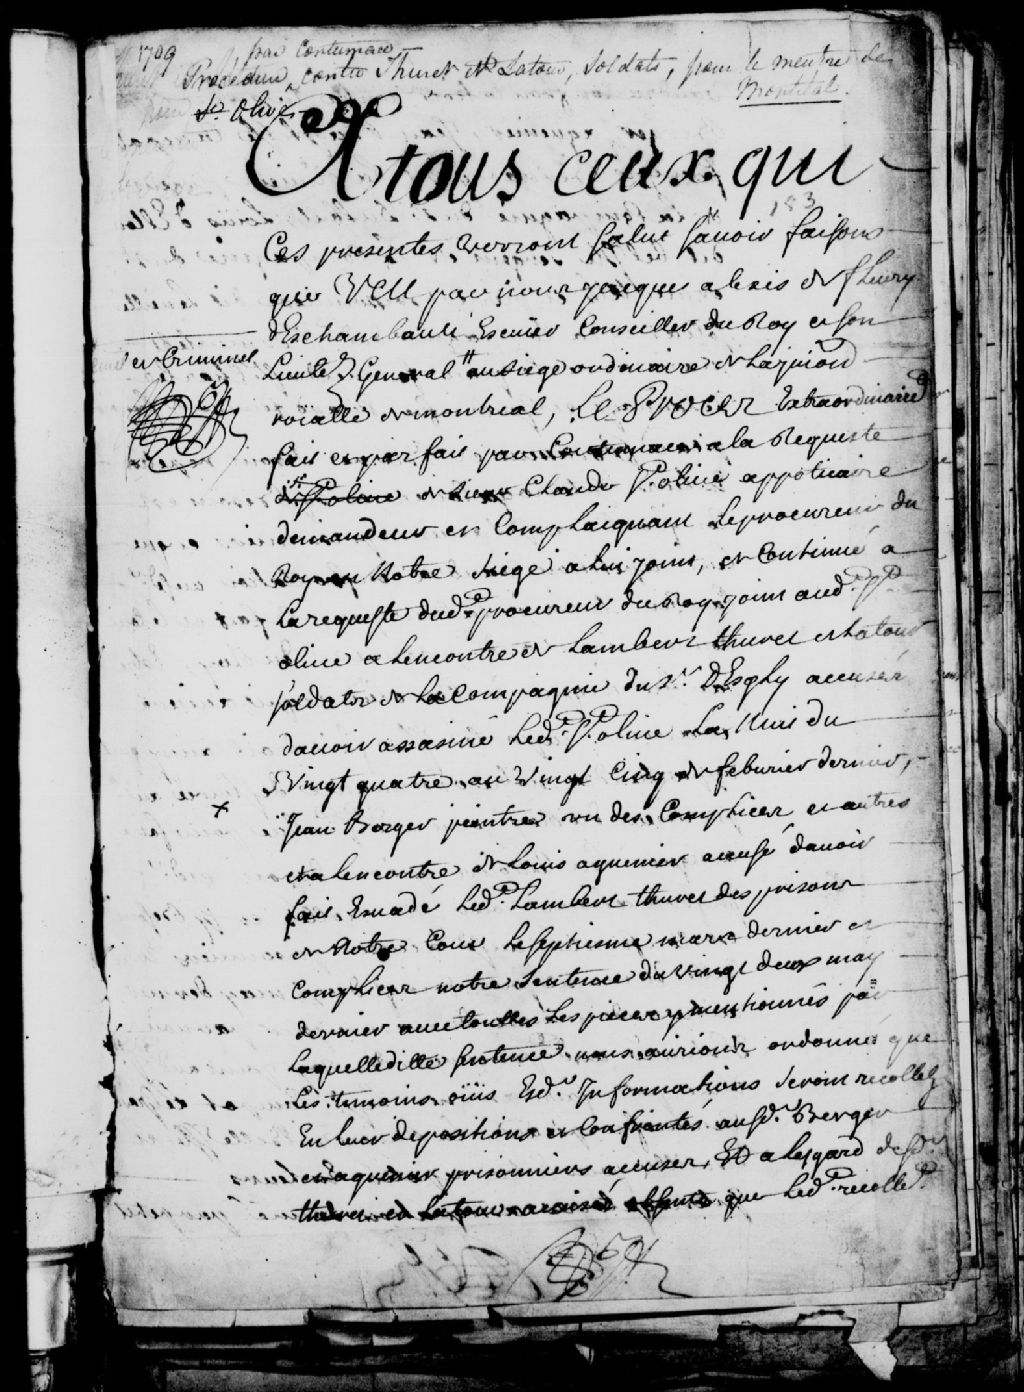 1709
par contumace
Procédure, contre Thuret et Latour, soldats, pour le meurtre de
Montréal.
St Olive
A tous ceux qui
183
Ces presentes verront salut sçavoir faisons
que VEU par nous jacques alexis de fleury
dEschambault Escuier Conseiller du Roy et son
Lieute. General au siege ordinaire de la jurion
roialle de montreal, LE PROCEZ Extraordinaire
et Criminel
fait et parfait par Contumace a la Requeste
de St. Poline de sieur Claude St. oline appoticaire
demandeur et Complaignant le procureur du
Roy en Notre siege a luy joint, et Continué a
la requeste dud. procureur du Roy joint aud. St.
oline a lencontre de Lambert thuret et Latour
soldats de la Compagnie du sr. DEsgly accusés
davoir assasiné Led. St. oline La Nuit du
Vingt quatre au Vingt Cinq de feburier dernier,
x
Jean Berger peintre un des Complices et autres
et a lencontre de Louis aguenier accusé davoir
fait Evadé Led. Lambert thuret des prisons
de Notre Cour le septiesme mars dernier et
Complices notre Sentence du vingt deux may
dernier avec touttes les pieces y mentionnés par
Laquelle ditte sentence nous aurions ordonné que
Les temoins ouïs Esd. Informations seront recollez
En leur depositions et Confrontés ausd. Berger
et aguenier prisonniers accusez, Et a lesgard desd.
thuret et Latour accusés absents que Led. recollet.